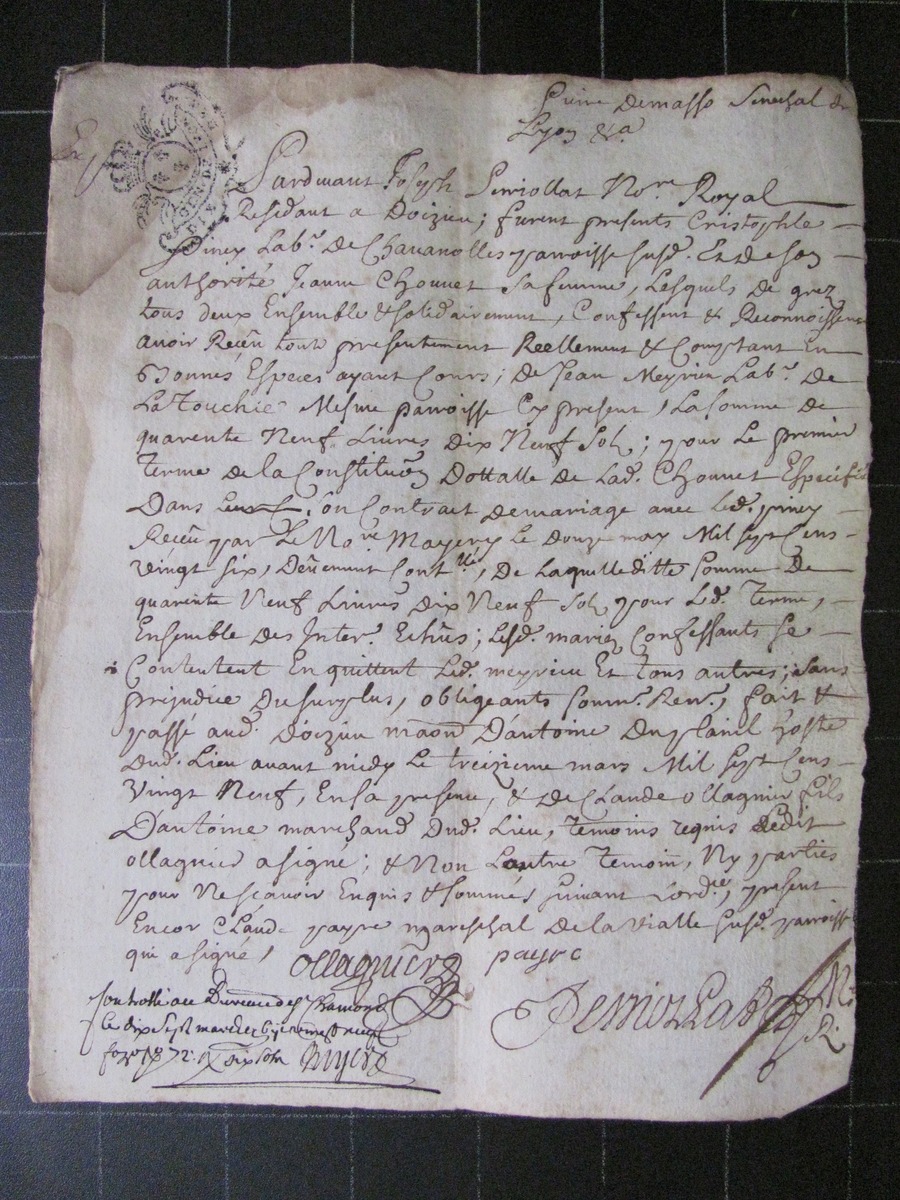 Pierre Demasso Senechal de
Lyon &a.
Pardevant Joseph Perriollat No.re Royal
Residant a Doizieu; furent presents Cristophle
Piney Lab.r De Chavanolles parroisse susd. Et de son
authorité Jeanne Chonnet sa femme, Lesquels de grez
tous deux Ensemble & solidairement, Confessent & Reconnoissent
avoir Receu tout presentement Reellement & Comptant En
Bonnes Especes ayant Cours; de Jean Meyrieu Lab.r De
La Touchie Mesme parroisse Cy present, La somme de
quarente Neuf Livres Dix Neuf Sols; pour Le premier
Terme de la Constitution Dottalle de Lad. Chonnet Especifié
Dans son Contrait de mariage avec Led. piney
Receu par Le No.re Mayery Le Douze may Mil sept Cens
Vingt Six, Deüement Cont.llé, De Laquelleditte somme De
quarente Neuf Livres Dix Neuf Sols pour Led. Terme,
Ensemble Des Inter. Echus; Lesd. mariez Confessants se
Contentent En quittent Led. meyrieu Et tous autres; sans
prejudice Du surplus, obligeants soum. Ren., fait &
passé aud. Doizieu maon D'antoine Duplanil hoste
Dud. Lieu avant midy Le treizieme mars Mil sept Cens
Vingt Neuf, En sa presence, & de Claude ollagnier fils
D'antoine marchand Dud. Lieu, temoins requis Ledit
ollagnier a signé; & Non Lautre temoin, Ny parties
pour Ne scavoir Enquis & sommés suivant L'ord.ce, present
Encor Claude payre mareschal de la Vialle susd. parroisse
qui a signé,
ollagnier payre
Controllé au Bureau de St Chamond Perriollat No.re R.
le dix sept mars mil sept cent vingt neuf
fo